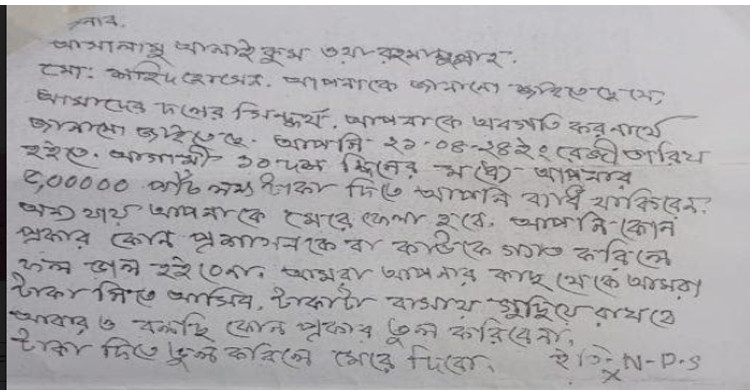 জনাব,
আসসালামু আলাইকুম ওয়া রহমাতুল্লাহ.
মো: ফরিদ হোসেন. আপনাকে জানানো জাইতেছে যে,
আমাদের দলের সিদ্ধার্থ. আপনাকে অবগতি করনার্থে
জানানো জাইতেছে. আপনি ২১-০৪-২৪ইং রেজী তারিখ
হইতে. আগামী ১০ দশ দিনের মধ্যে আপনার
৫,০০০০০ পাঁচ লক্ষ টাকা দিতে আপনি বাধ্য থাকিবেন.
অন্য থায় আপনাকে মেরে ফেলা হবে. আপনি কোন
প্রকার কোন প্রশাসনকে বা কাউকে গগত করিলে
ফল ভাল হইবেনা. আমরা আপনার কাছ থেকে আমরা
টাকা নিতে আসিব, টাকাটা বাসায় গুছিয়ে রাখবে
আবার ও বলছি কোন প্রকার ভুল করিবেনা,
টাকা দিতে ভুল করিলে মেরে দিবো. ইতি: N-P-S